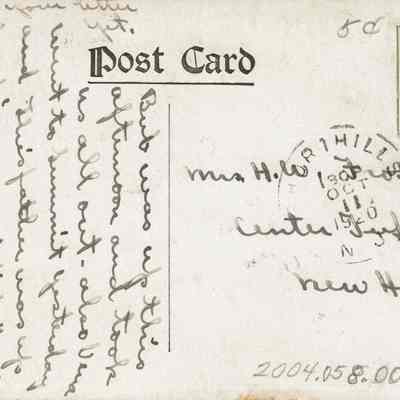 your letter
yet.
5¢
Post Card
Bub was up this
afternoon and took
us all out - also
went to Summit yesterday
and his father was up
OCT
11
N
Mrs H.W.
Center
New H
2004.058.00